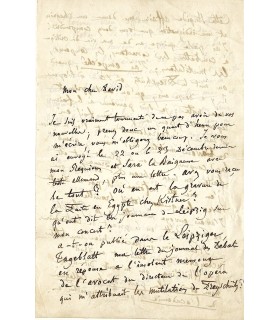 Mon cher David
Je suis vraiment tourmenté de ne pas avoir de vos
nouvelles; prenez donc un quart d'heure pour
m'écrire, vous m'obligerez beaucoup. Je vous
ai envoyé le 22 ou le 23 Décembre dernier
mon Requiem et Sara la Baigneuse avec
texte allemand plus une lettre, avez vous reçu
le tout? Où en est la gravure de
la Fuite en Egypte chez Kistner?
qu'ont dit les journaux de Leipzig sur
mon concert?
a-t-on publié dans le Leipziger
Tageblatt ma lettre du journal des Débats
en réponse à l'insolent mensonge
de l'avocat du directeur de l'opéra
qui m'attribuait les mutilations du Freyschütz?